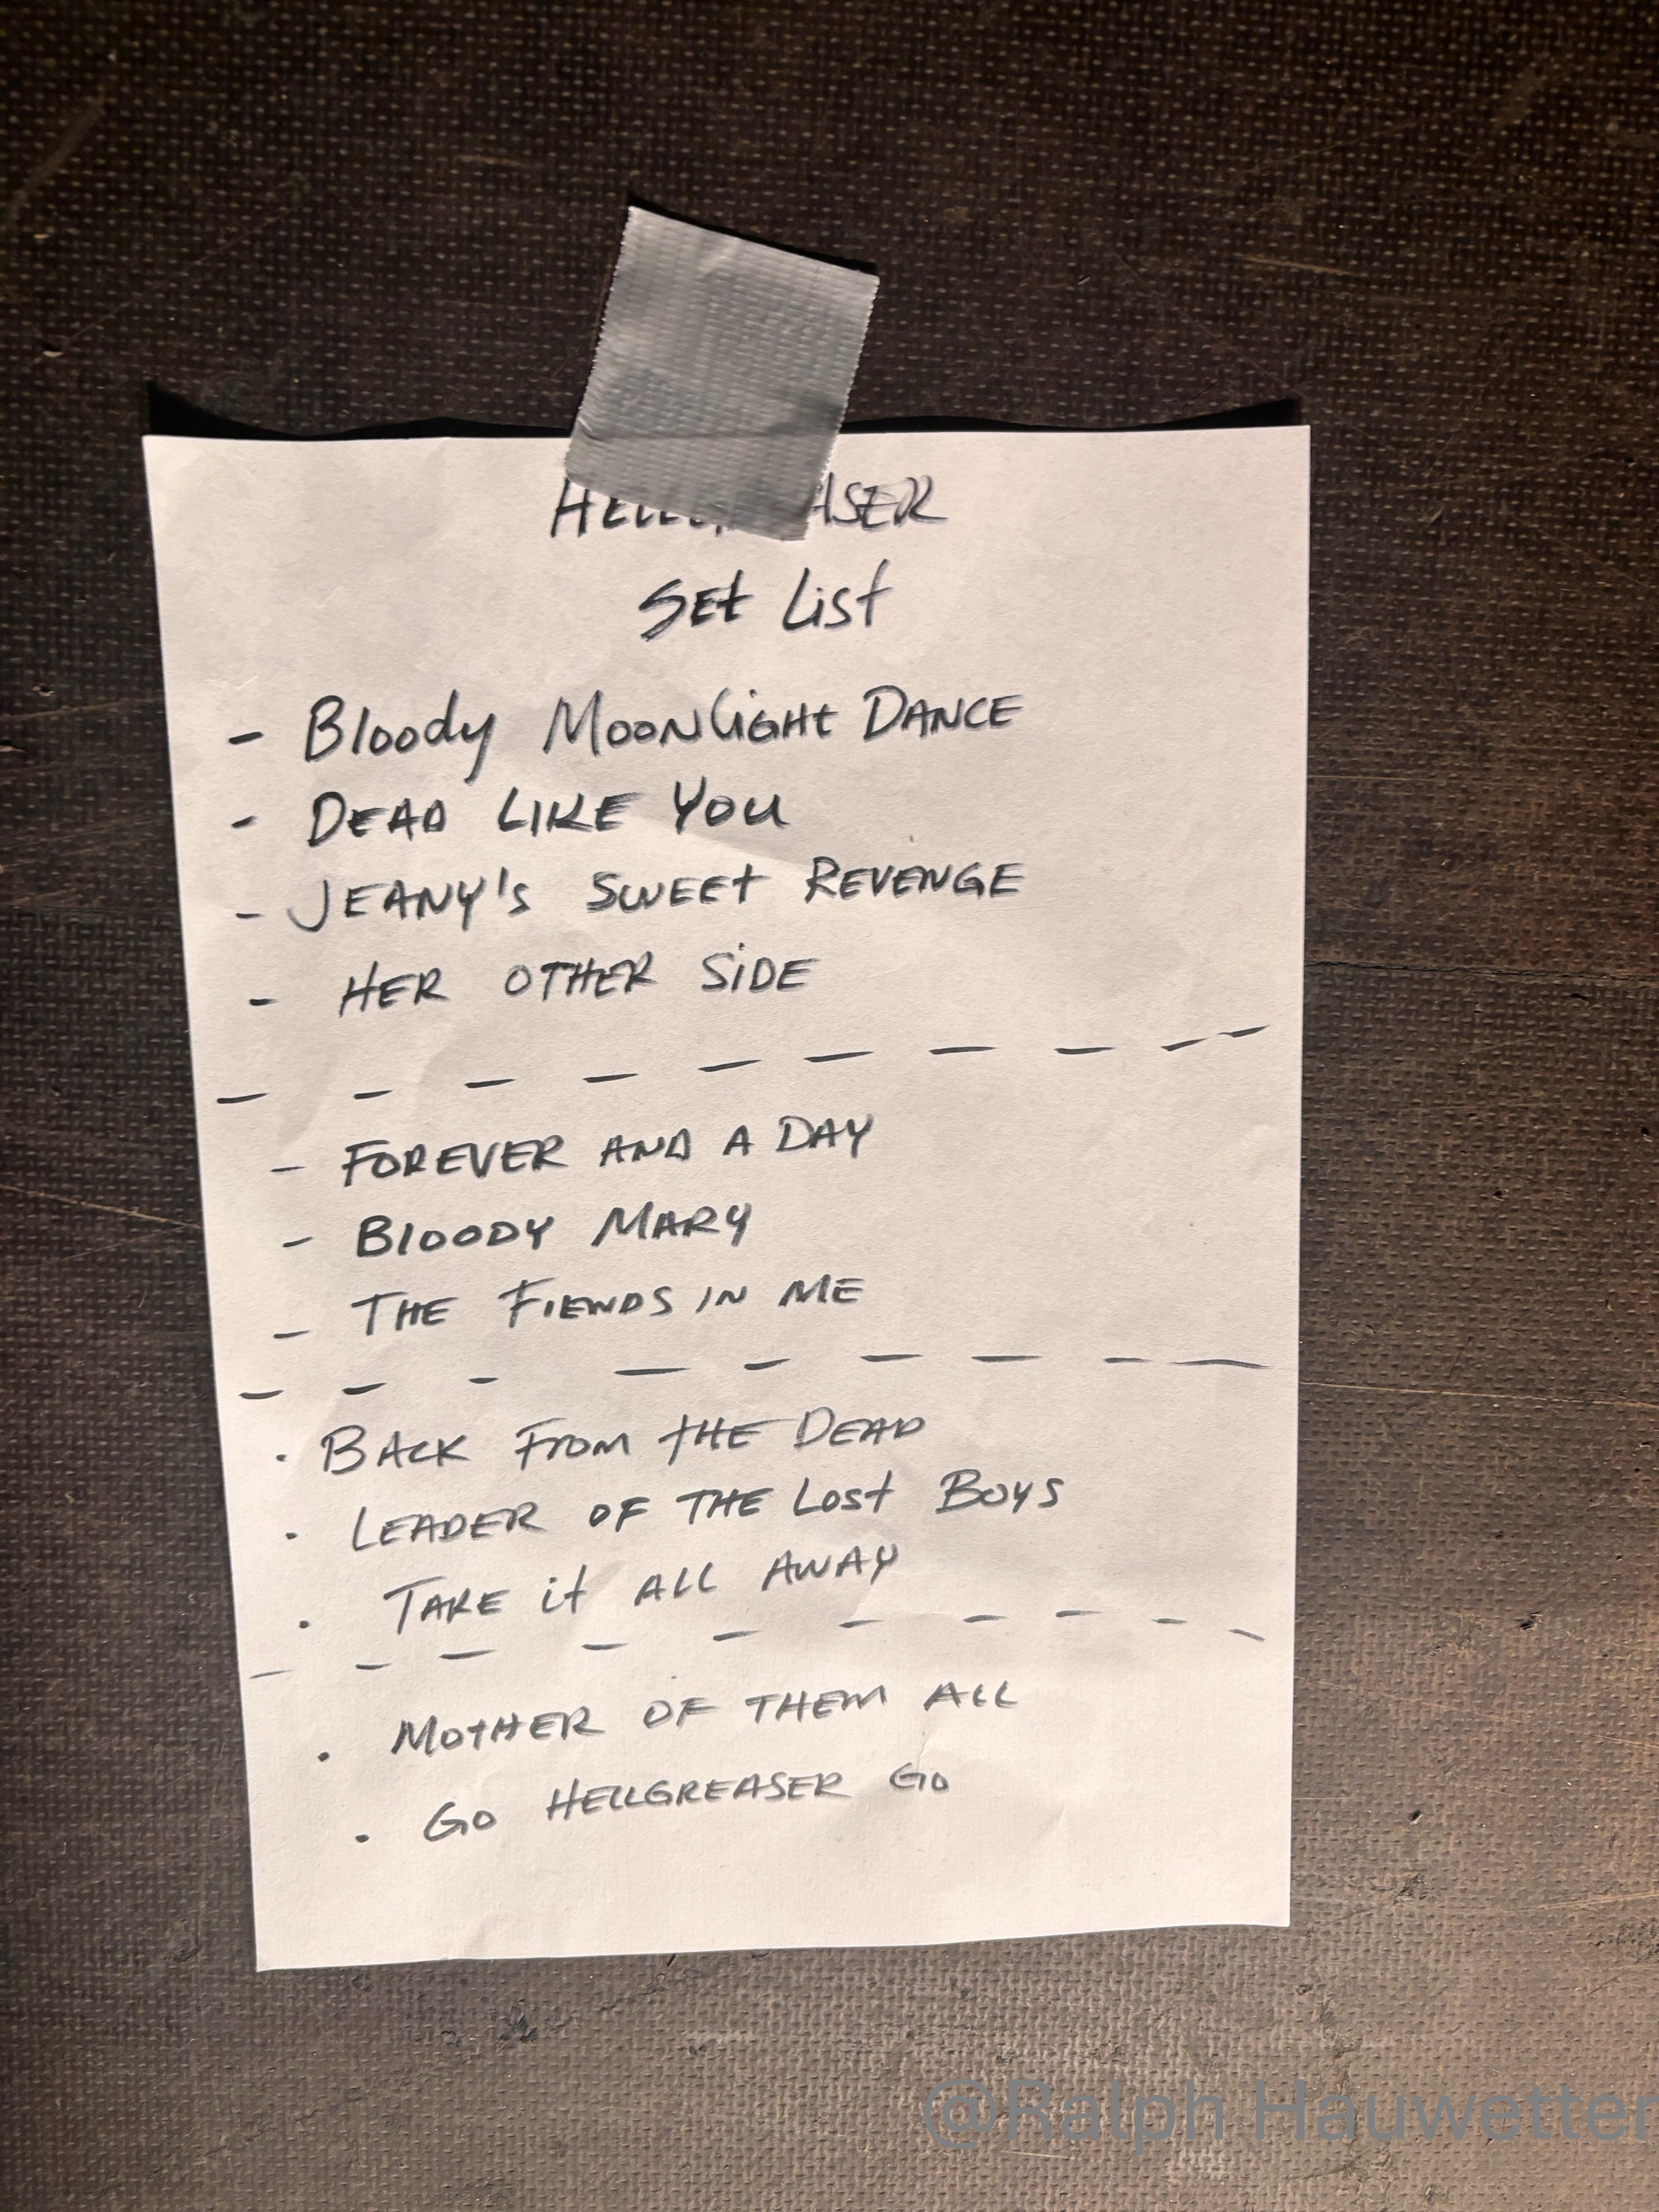 HELLGREASER
Set List
- Bloody Moonlight Dance
- Dead Like You
- Jeany's Sweet Revenge
- Her Other Side
- - - - - - - - -
- Forever and a Day
- Bloody Mary
- The Fiends in Me
- - - - - - - - -
· Back From the Dead
· Leader of the Lost Boys
· Take it All Away
- - - - - - - - -
· Mother of Them All
· Go Hellgreaser Go
@Ralph Hauwetter